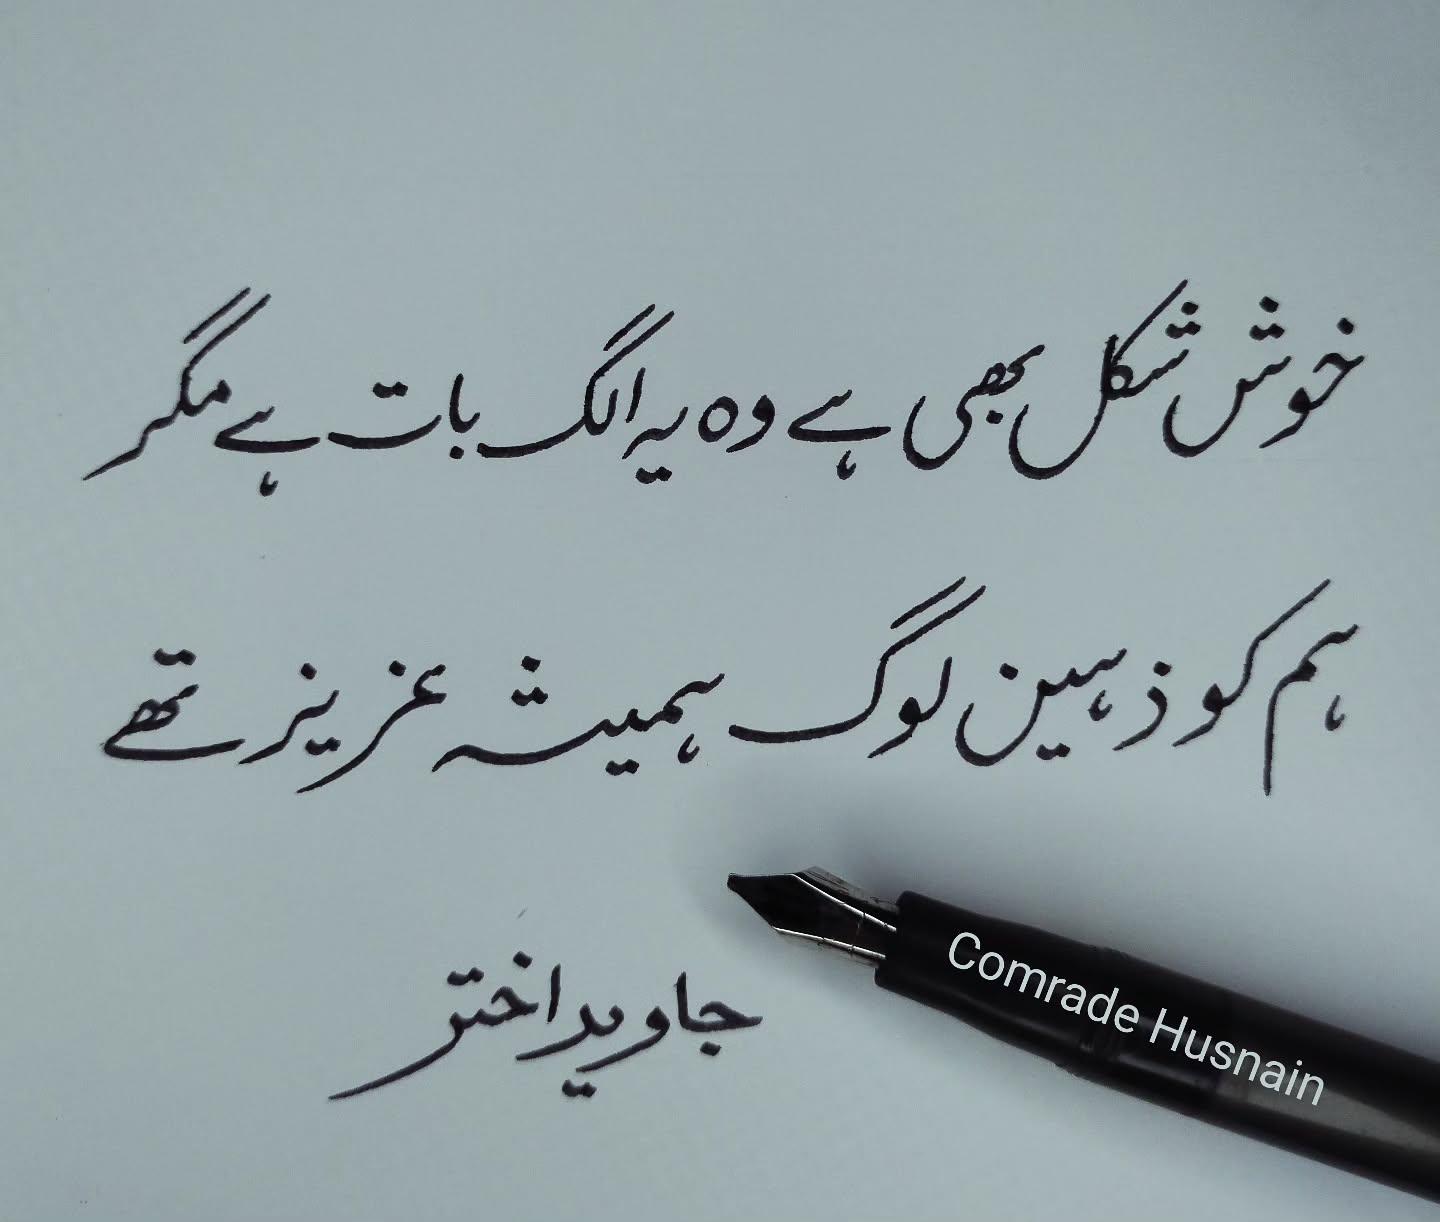 خوش شکل بھی ہے وہ یہ الگ بات ہے مگر
ہم کو ذہین لوگ ہمیشہ عزیز تھے
جاوید اختر
Comrade Husnain